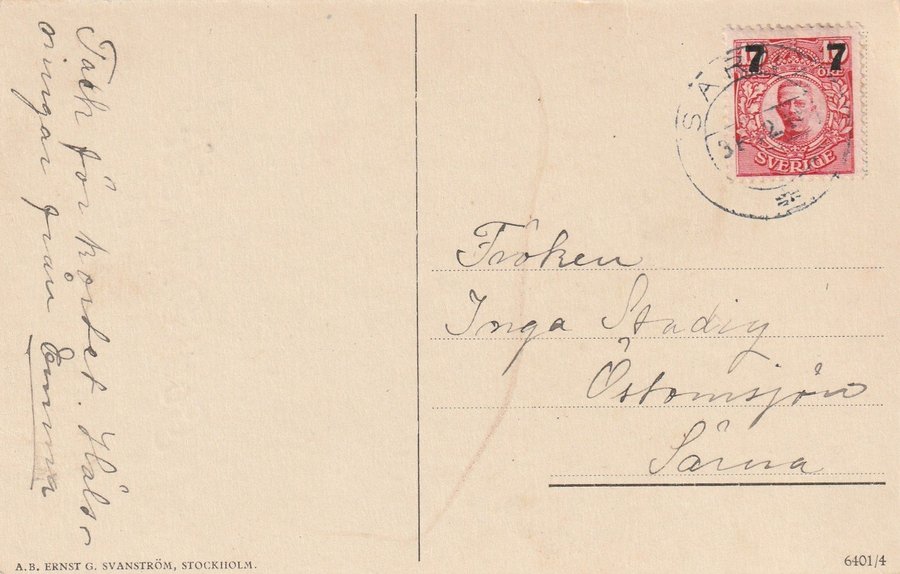 Tack för kordet. Häls-
ningar från Emma
7 7
SVERIGE
SÄR
Fröken
Inga Stadig
Östomsjön
Särna
A.B. ERNST G. SVANSTRÖM, STOCKHOLM.
6401/4